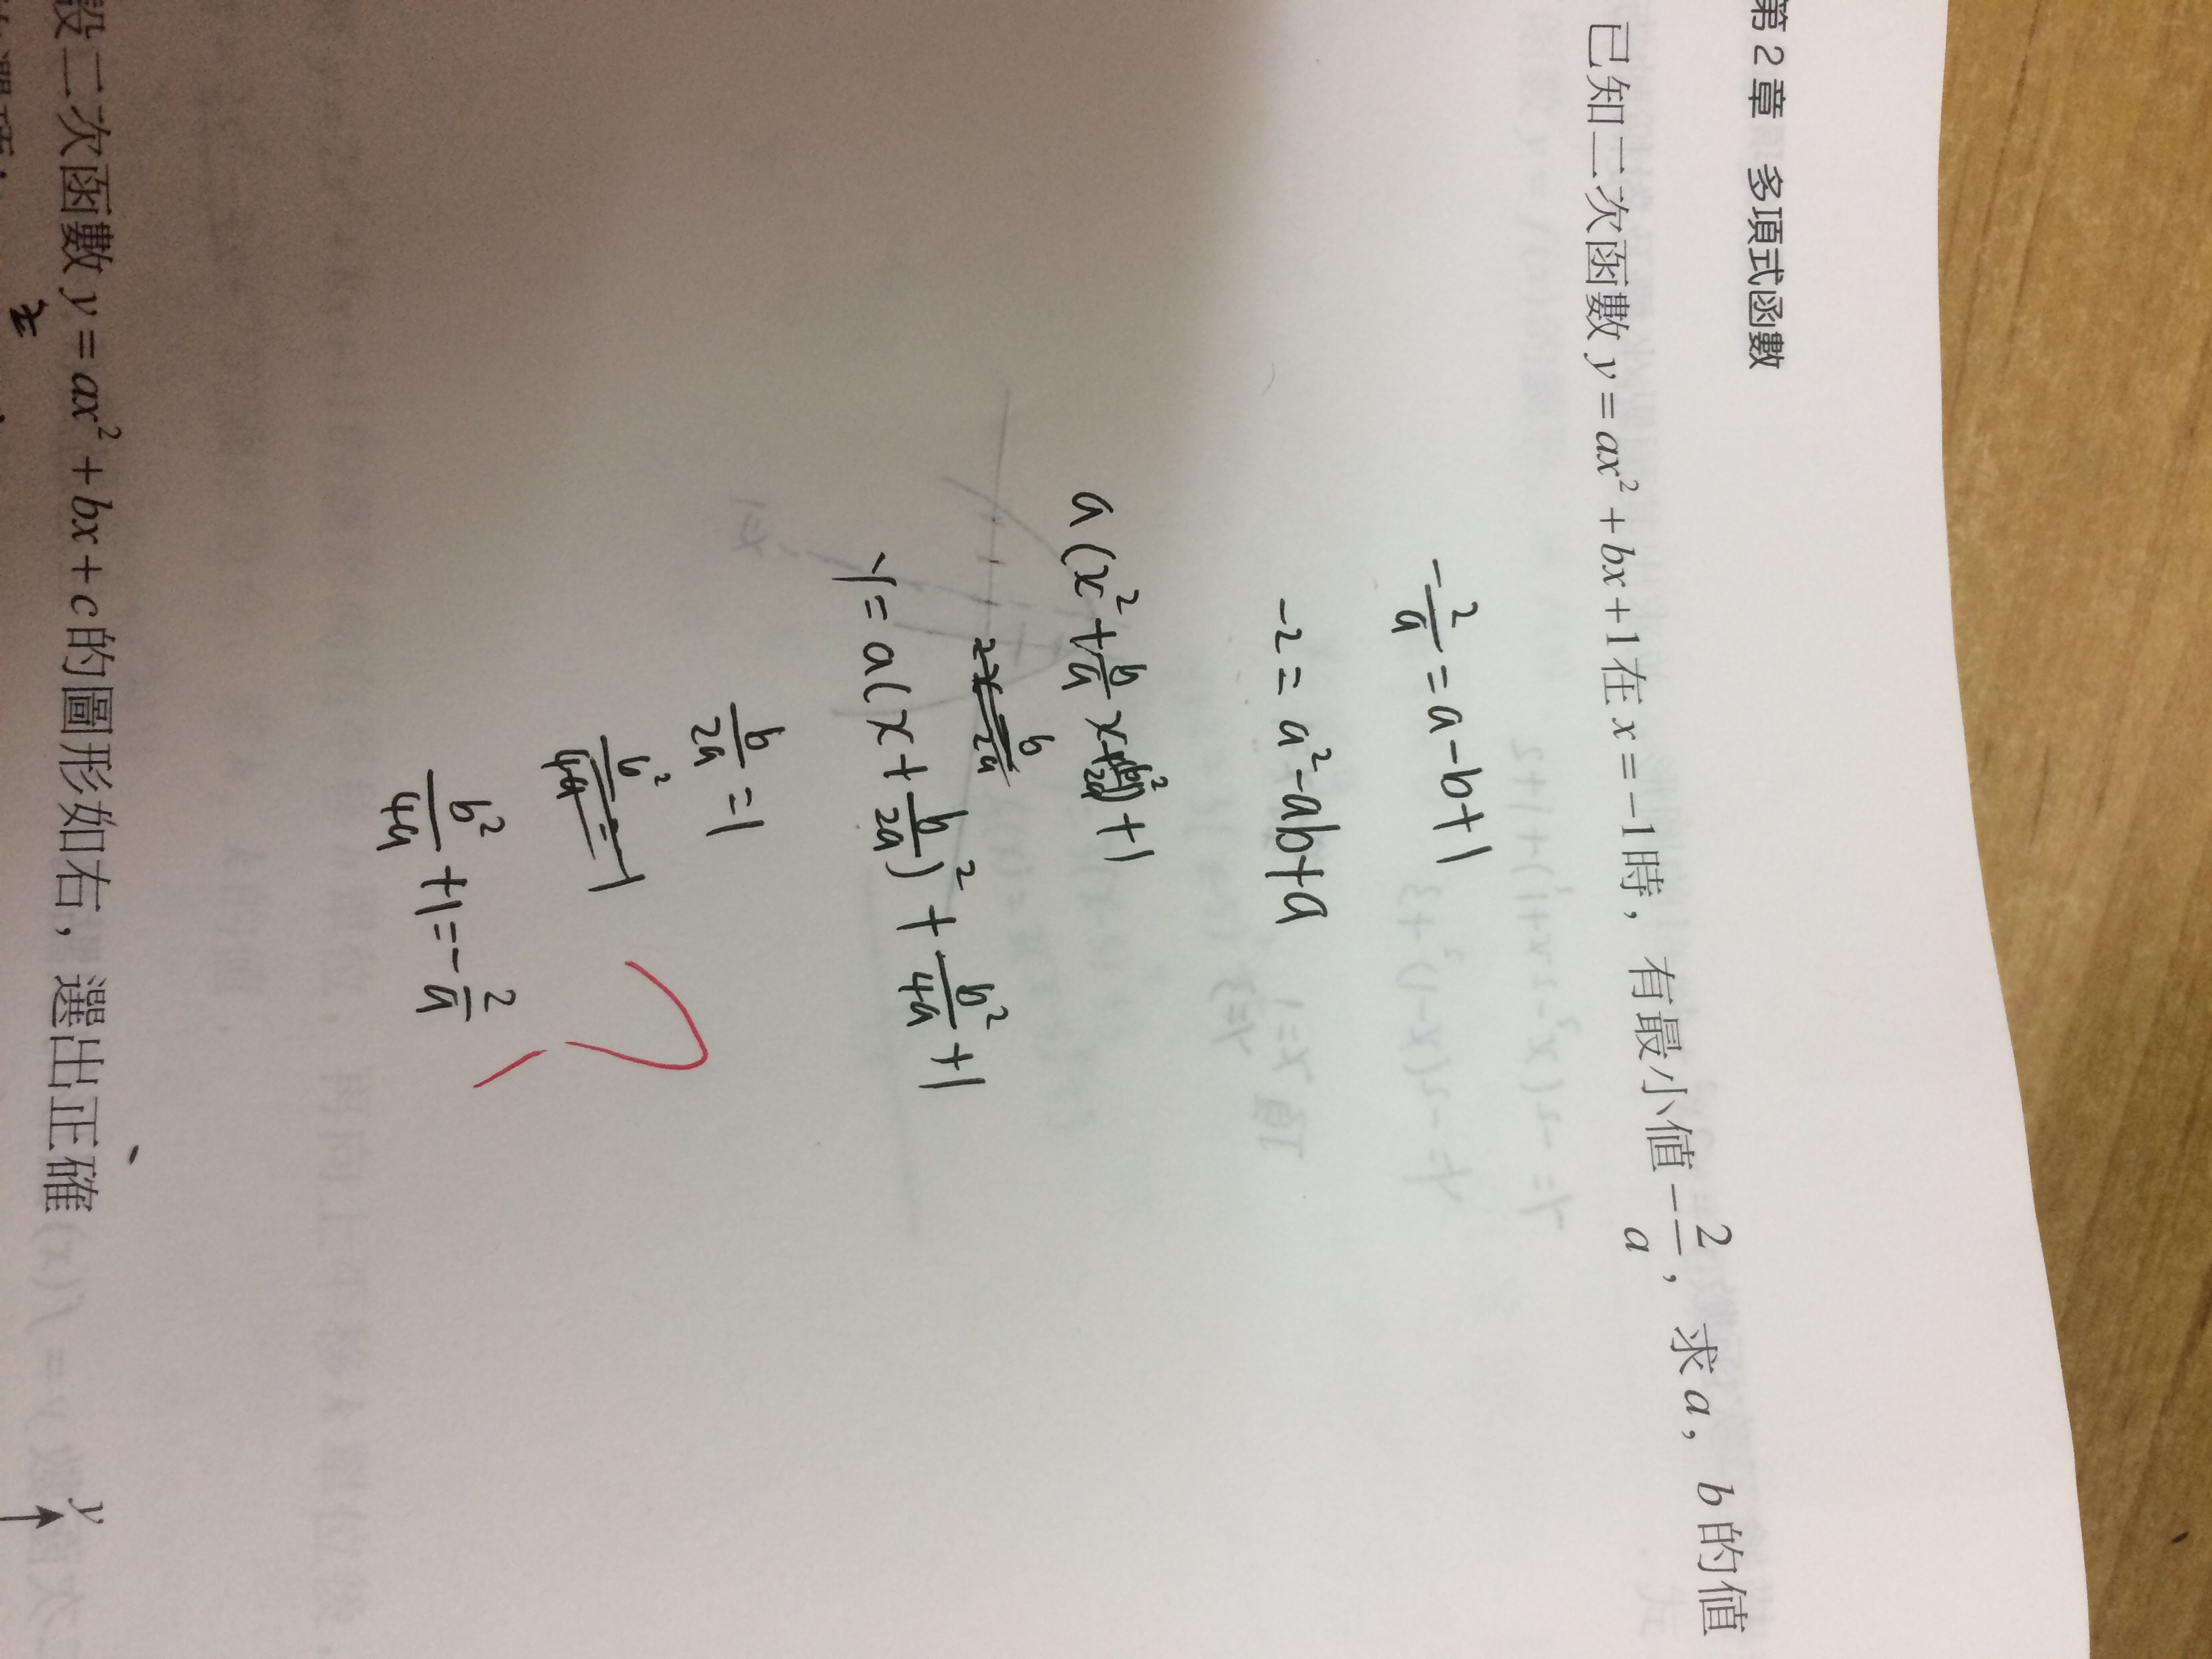 第2章 多項式函數
已知二次函數 y=ax²+bx+1在 x=-1時，有最小值-2/a，求a，b的值
-2/a=a-b+1
-2=a²-ab+a
a(x²+b/a x+(b/2a)²)+1
y=a(x+b/2a)²+b²/4a+1
b/2a=1
b²/4a+1=-2/a
設二次函數 y=ax²+bx+c的圖形如右，選出正確
y